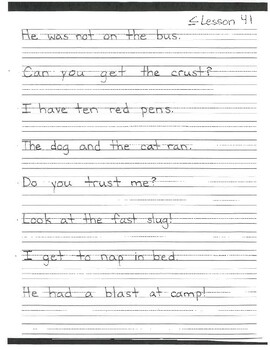 Lesson 41
He was not on the bus.
Can you get the crust?
I have ten red pens.
The dog and the cat ran.
Do you trust me?
Look at the fast slug!
I get to nap in bed.
He had a blast at camp!